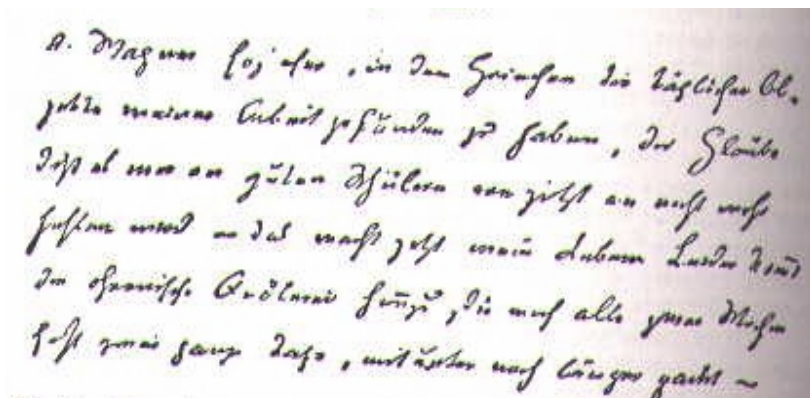 R. Wagner his jeher, in den Griechen die täglichen Ob-
jekte meiner Arbeit gefunden zu haben, der Glaube
daß es mir an guten Schülern von jetzt an nicht mehr
fehlen wird — das macht jetzt mein Leben. Leider kommt
die chronische Quälerei hinzu, die mich alle zwei Wochen
fast zwei ganze Tage, mitunter noch länger packt —